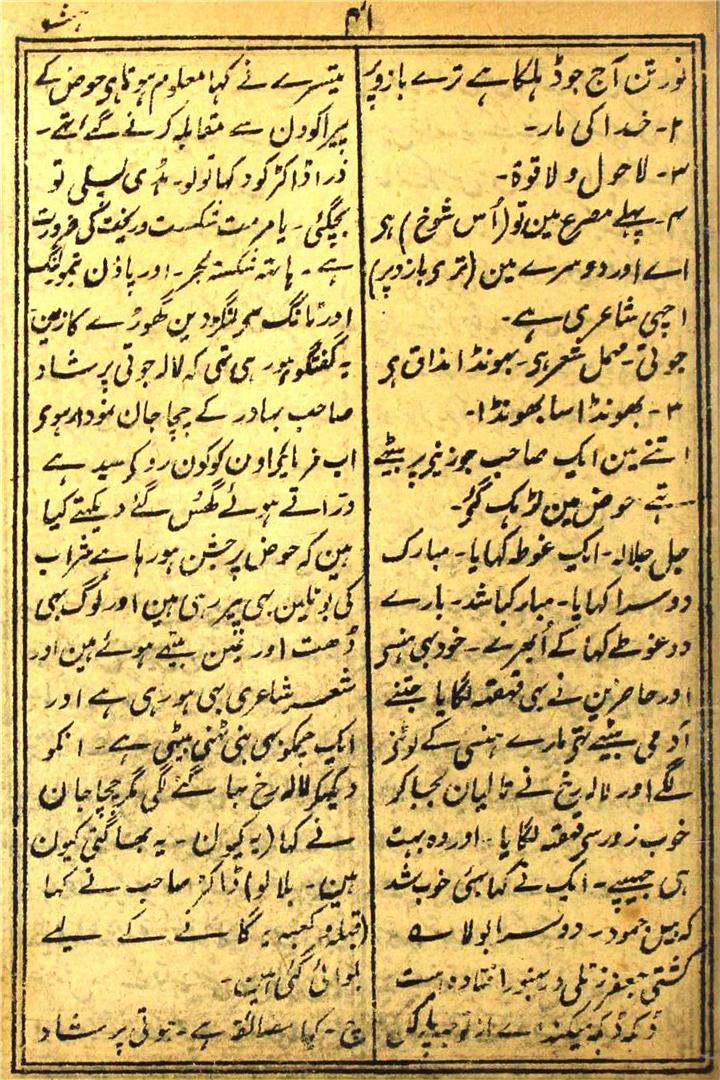 ہشو
۴۱
نورتن آج جو ڈہلکا ہے ترے بازو پر
۲۔ خدا کی مار۔
۳۔ لاحول ولاقوۃ۔
۴۔ پہلے مصرع مین تو (اُس شوخ) ہر
اے اور دوسرے مین (تری بازو پر)
اچھی شاعری ہے۔
جوتی۔ مہمل شعر ہر۔ بھونڈا مذاق ہر
۳۔ بھونڈا سا بھونڈا۔
اتنے مین ایک صاحب جو زینے پر بیٹھے
تھے حوض مین لڑہک گئے۔
جل جلالہ۔ ایک غوطہ کہایا۔ مبارک
دوسرا کہایا۔ مبارکباشد۔ بارے
دو غوطے کہا کے اُبھرے۔ خود بھی ہنسے
اور حاضرین نے بھی قہقہہ لگایا جتنے
آدمی بیٹھے تھے مارے ہنسی کے لوٹنے
لگے اور لالہ رخ نے تالیان بجا بجا کر
خوب زور سے قہقہہ لگایا۔ اور وہ بہت
ہی جھیپے۔ ایک نے کہا بھئی خوب شد
کہ بیل نمود۔ دوسرا بولا ے
کشتی جعفر زٹلی در بھنور افتادہ است
ڈبکو ڈبکو میکند اے از توجہ پار کن
تیسرے نے کہا معلوم ہوتا ہی حوض کے
پیراکون سے مقابلہ کرنے گئے تھے۔
ذرا ڈاکٹر کو دکہا تو لو۔ ہڈی پسلی تو
بچگئی۔ یا مرمت شکست و ریخت کی ضرورت
ہے۔ ہاتھ شکستہ بحر۔ اور پاؤن تیمورلنگ
اور ٹانگ سے لنگڑدین گھوڑے کا زین
یہ گفتگو ہو رہی تھی کہ لالہ جوتی پرشاد
صاحب بہادر کے چچا جان نمودار ہوی
اب فرمایئے اون کو کون روکے سیدھے
درّاتے ہوئے گھُس گئے دیکھتے کیا
ہین کہ حوض پر جشن ہو رہا ہے شراب
کی بوتلین بھی پیر رہی ہین اور لوگ بھی
دُھت اور ٹین بیٹھے ہوئے ہین اور
شعر شاعری بھی ہو رہی ہے اور
ایک چھمکو بھی بنی ٹھنی بیٹھی ہے۔ انکو
دیکھکر لالہ رخ بھاگنے لگی مگر چچا جان
نے کہا (یہ کیون۔ یہ بھاگتی کیون
ہین۔ بلالو) ڈاکٹر صاحب نے کہا
(قبلہ و کعبہ یہ گانے کے لیے
بلوائی گئی ہین۔
چ۔ کیا مضائقہ ہے۔ جوتی پرشاد